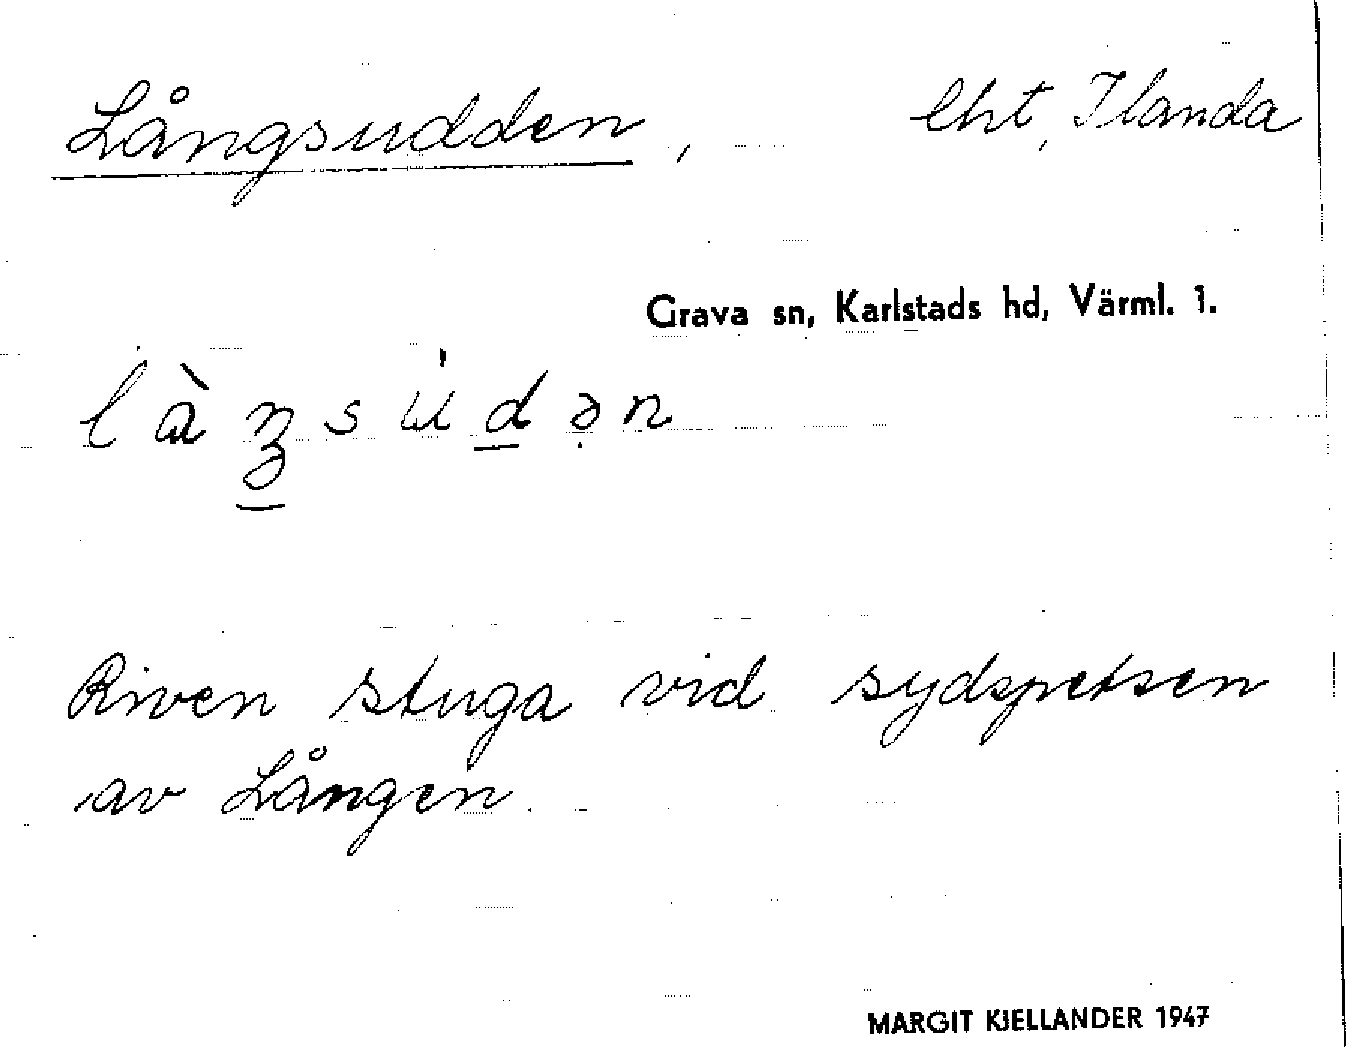 Långsudden, lht, Ilanda
Grava sn, Karlstads hd, Värml. 1.
Riven stuga vid sydspetsen
av Lången.
MARGIT KJELLANDER 1947